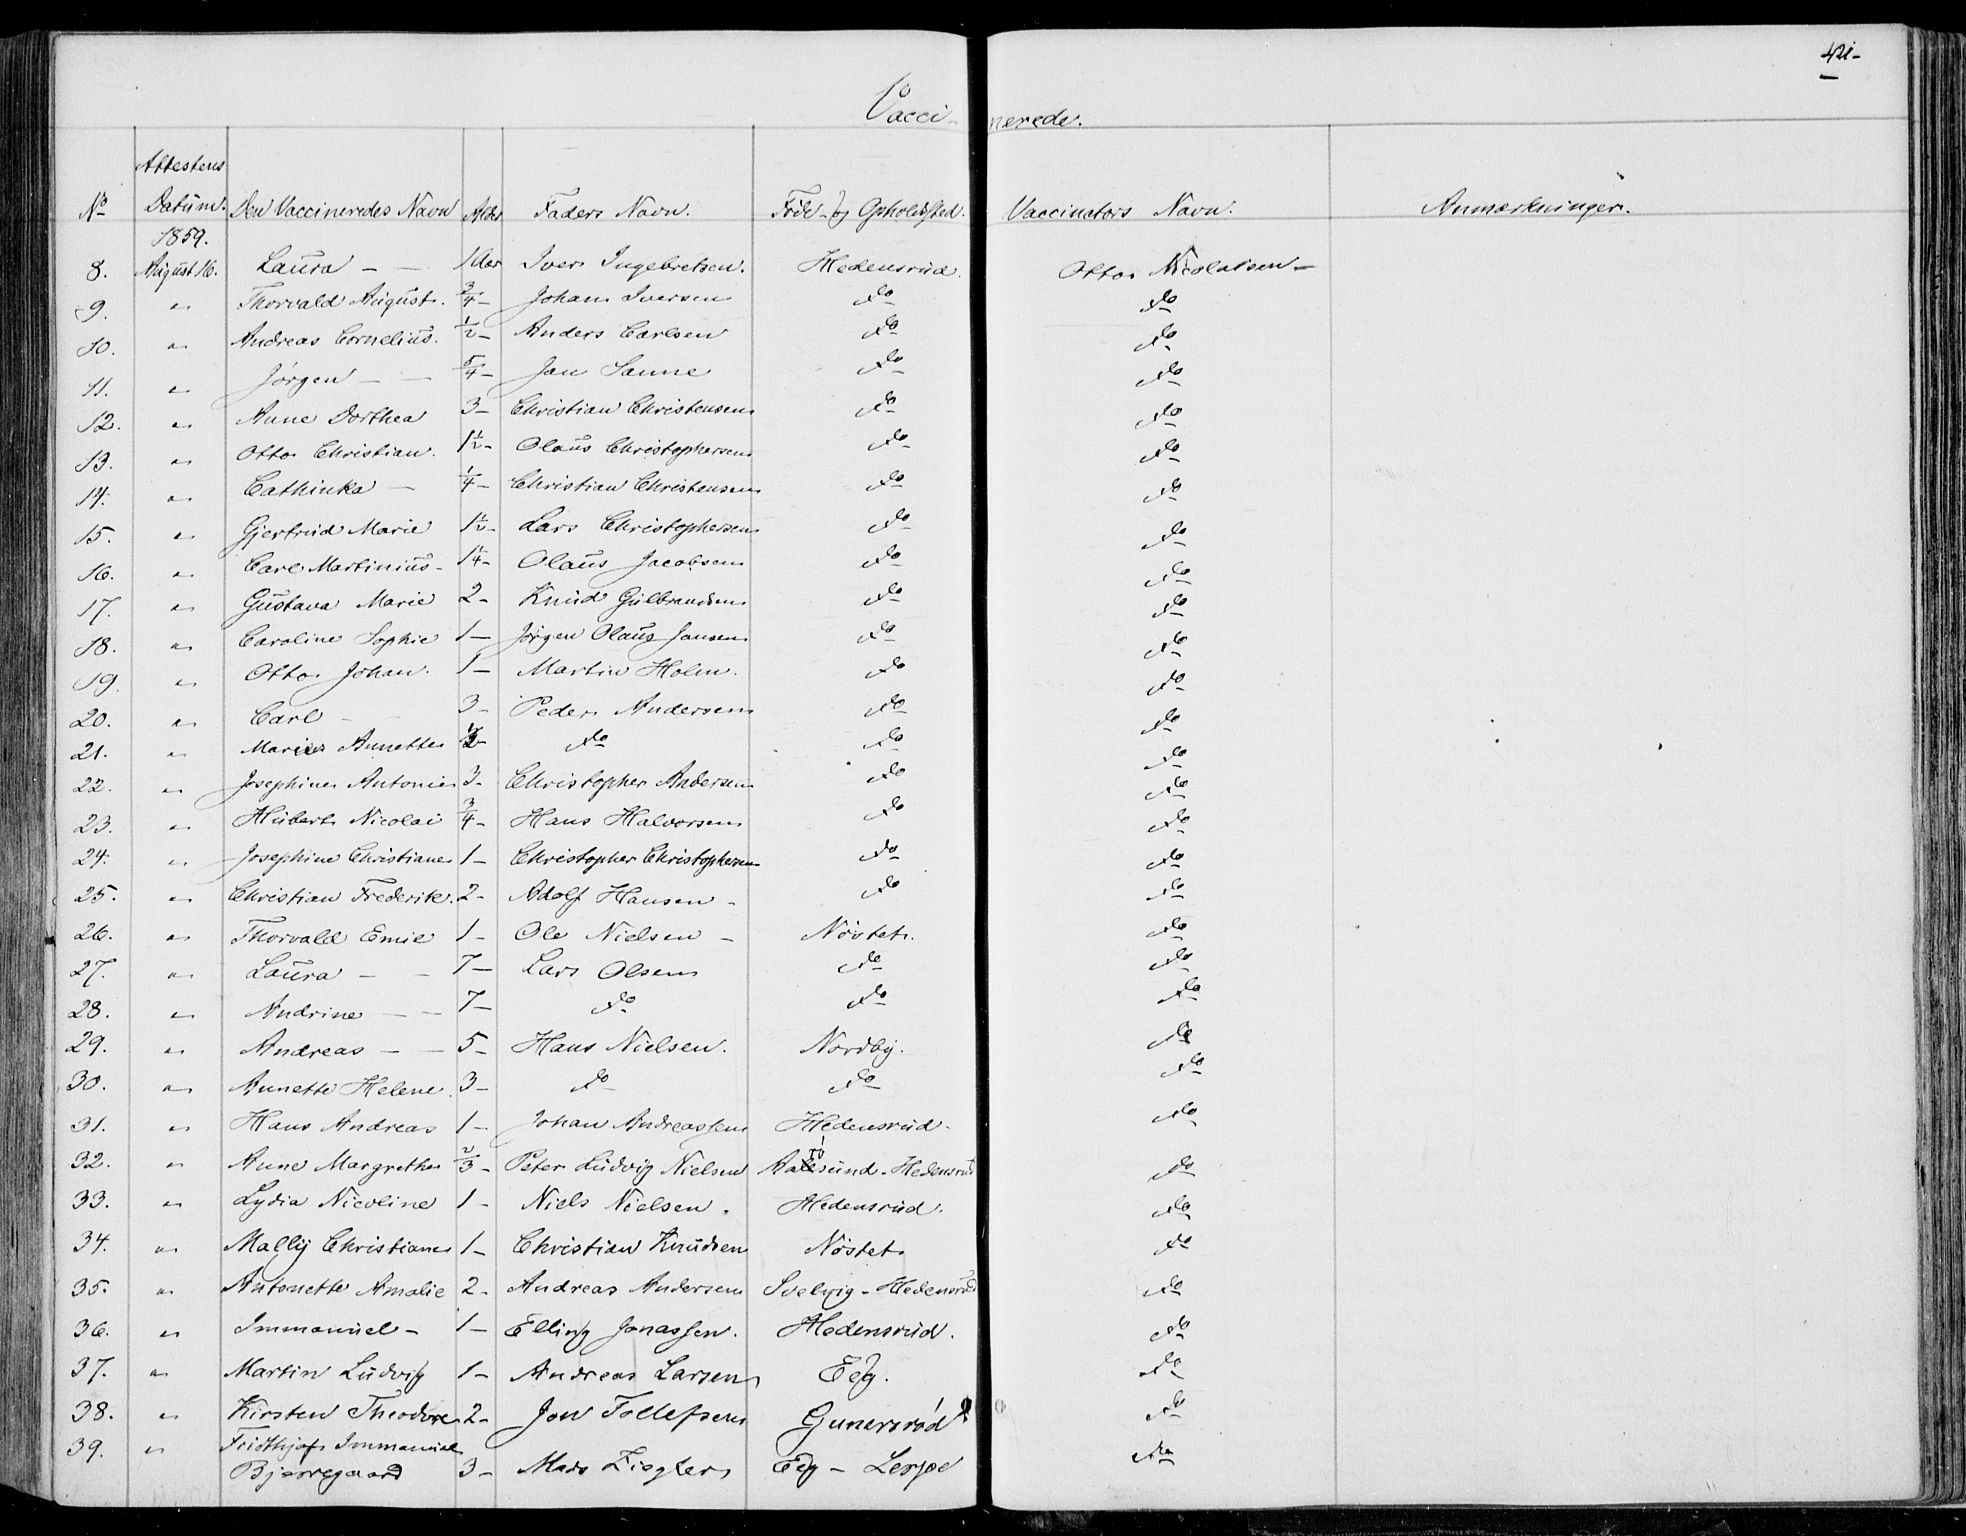 421-
Vaccinerede.
No Attestens Datum. Den Vaccineredes Navn Alder Faders Navn. Føde- og Opholdsted. Vaccinators Navn. Anmærkninger.
1859.
8. August 16. Laura - - 1 Aar Iver Ingebretsen. Hedensrud. Otto Nicolaisen -
9. " Thorvald August. 3/4 - Johan Iversen do do
10. " Andreas Cornelius. 1/2 - Anders Carlsen do do
11. " Jørgen - - 5/4 - Jan Sanne do do
12. " Anne Dorthea 3 - Christian Christensen do do
13. " Otto Christian. 1 1/2 - Olaus Christophersen do do
14. " Cathinka - 1/4 - Christian Christensen do do
15. " Gjertrud Marie 1 1/2 - Lars Christophersen do do
16. " Carl Martinius - 1 1/4 - Olaus Jacobsen do do
17. " Gustava Marie 2 - Knud Gulbrandsen do do
18. " Caroline Sophie 1 - Jørgen Olaus Jansen do do
19. " Otto Johan. 1 - Martin Holm. do do
20. " Carl - - 3 - Peder Andersen do do
21. " Annette do do do
22. " Josephine Antonie 3 - Christopher Andersen do do
23. " Hubert Nicolai 3/4 - Hans Halvorsen do do
24. " Josephine Christiane 1 - Christopher Christophersen do do
25. " Christian Frederik. 2 - Adolf Hansen - do do
26. " Thorvald Emil 1 - Ole Nielsen - Nøstet. do
27. " Laura - - 7 - Lars Olsen do do
28. " Andrine - - 7 - do do do
29. " Andreas - - 5 - Hans Nielsen. Nordby. do
30. " Annette Helene. 3 - do do do
31. " Hans Andreas 1 - Johan Andreassen Hedensrud. do
32. " Anne Margrethe 2/3 - Peter Ludvig Nielsen Hedensrud do
33. " Lydia Nicoline 1 - Niels Nielsen. Hedensrud. do
34. " Mally Christiane 1 - Christian Knudsen Nøstet do
35. " Antonette Amalie 2 - Andreas Andersen Svelvig - Hedensrud do
36. " Immanuel - 1 - Elling Jonassen. Hedensrud. do
37. " Martin Ludvig 1 - Andreas Larsen Eeg. do
38. " Kirsten Theodore 2 - Jon Tollefsen Gunersrød do
39. " Fridthjof Immanuel
Bjerregaard 3 - Mads Ziegler Eeg - Lerpe do